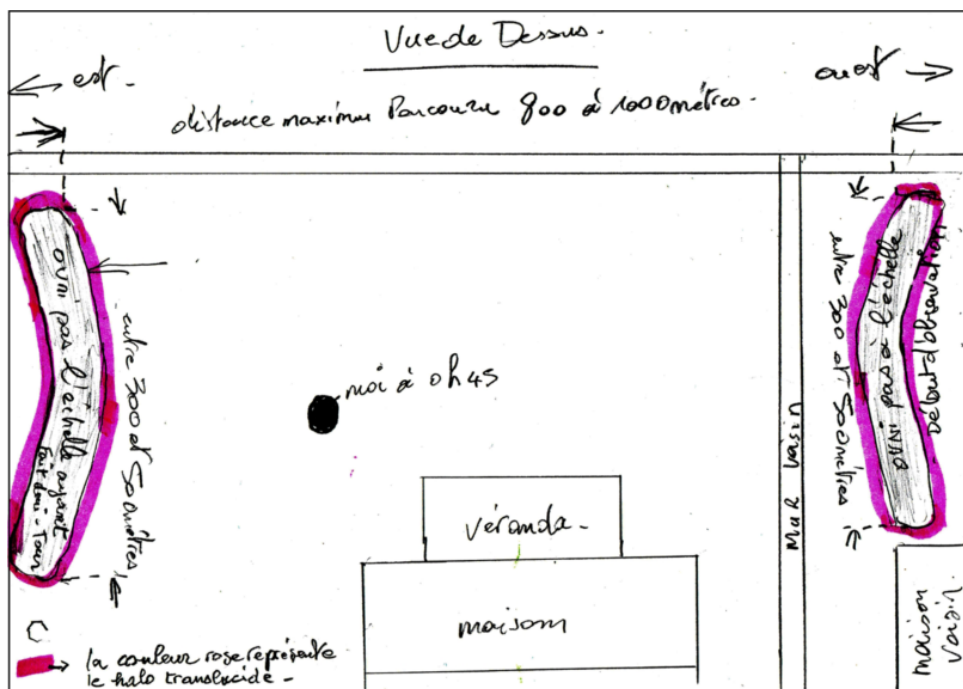 Vue de Dessus.
est.
ouest
distance maximum Parcouru 800 à 1000 mètres.
OVNI pas l'échelle ayant
fait demi-Tour
entre 300 et 500 mètres
moi à 0h45
véranda.
maison
MUR Voisin
entre 300 et 500 mètres
OVNI pas à l'échelle
Début d'observation
maison
voisin.
la couleur rose représente
le halo translucide.